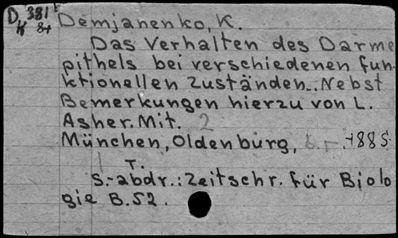 D 381
K 84
Demjanenko, K.
Das Verhalten des Darme
pithels bei verschiedenen fun-
ktionellen Zuständen. Nebst
Bemerkungen hierzu von L.
Asher. Mit. 2
München, Oldenburg, -1885
T.
S.-abdr.: Zeitschr. für Biolo
gie B.52.